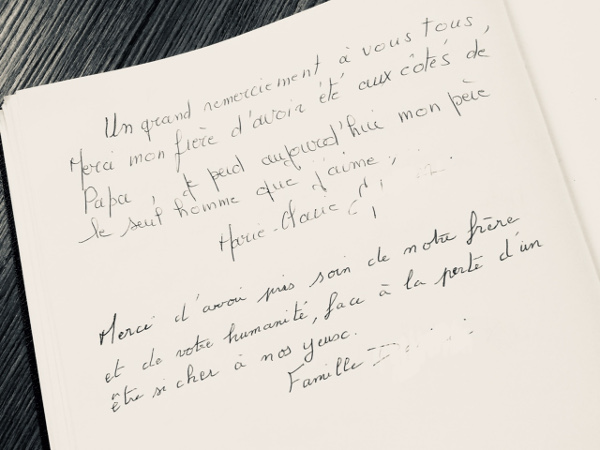 Un grand remerciement à vous tous,
Merci mon frère d'avoir été aux côtés de
Papa, je perd aujourd'hui mon père
le seul homme que j'aime,
Marie-Claire
Merci d'avoir pris soin de notre frère
et de votre humanité, face à la perte d'un
être si cher à nos yeux.
Famille